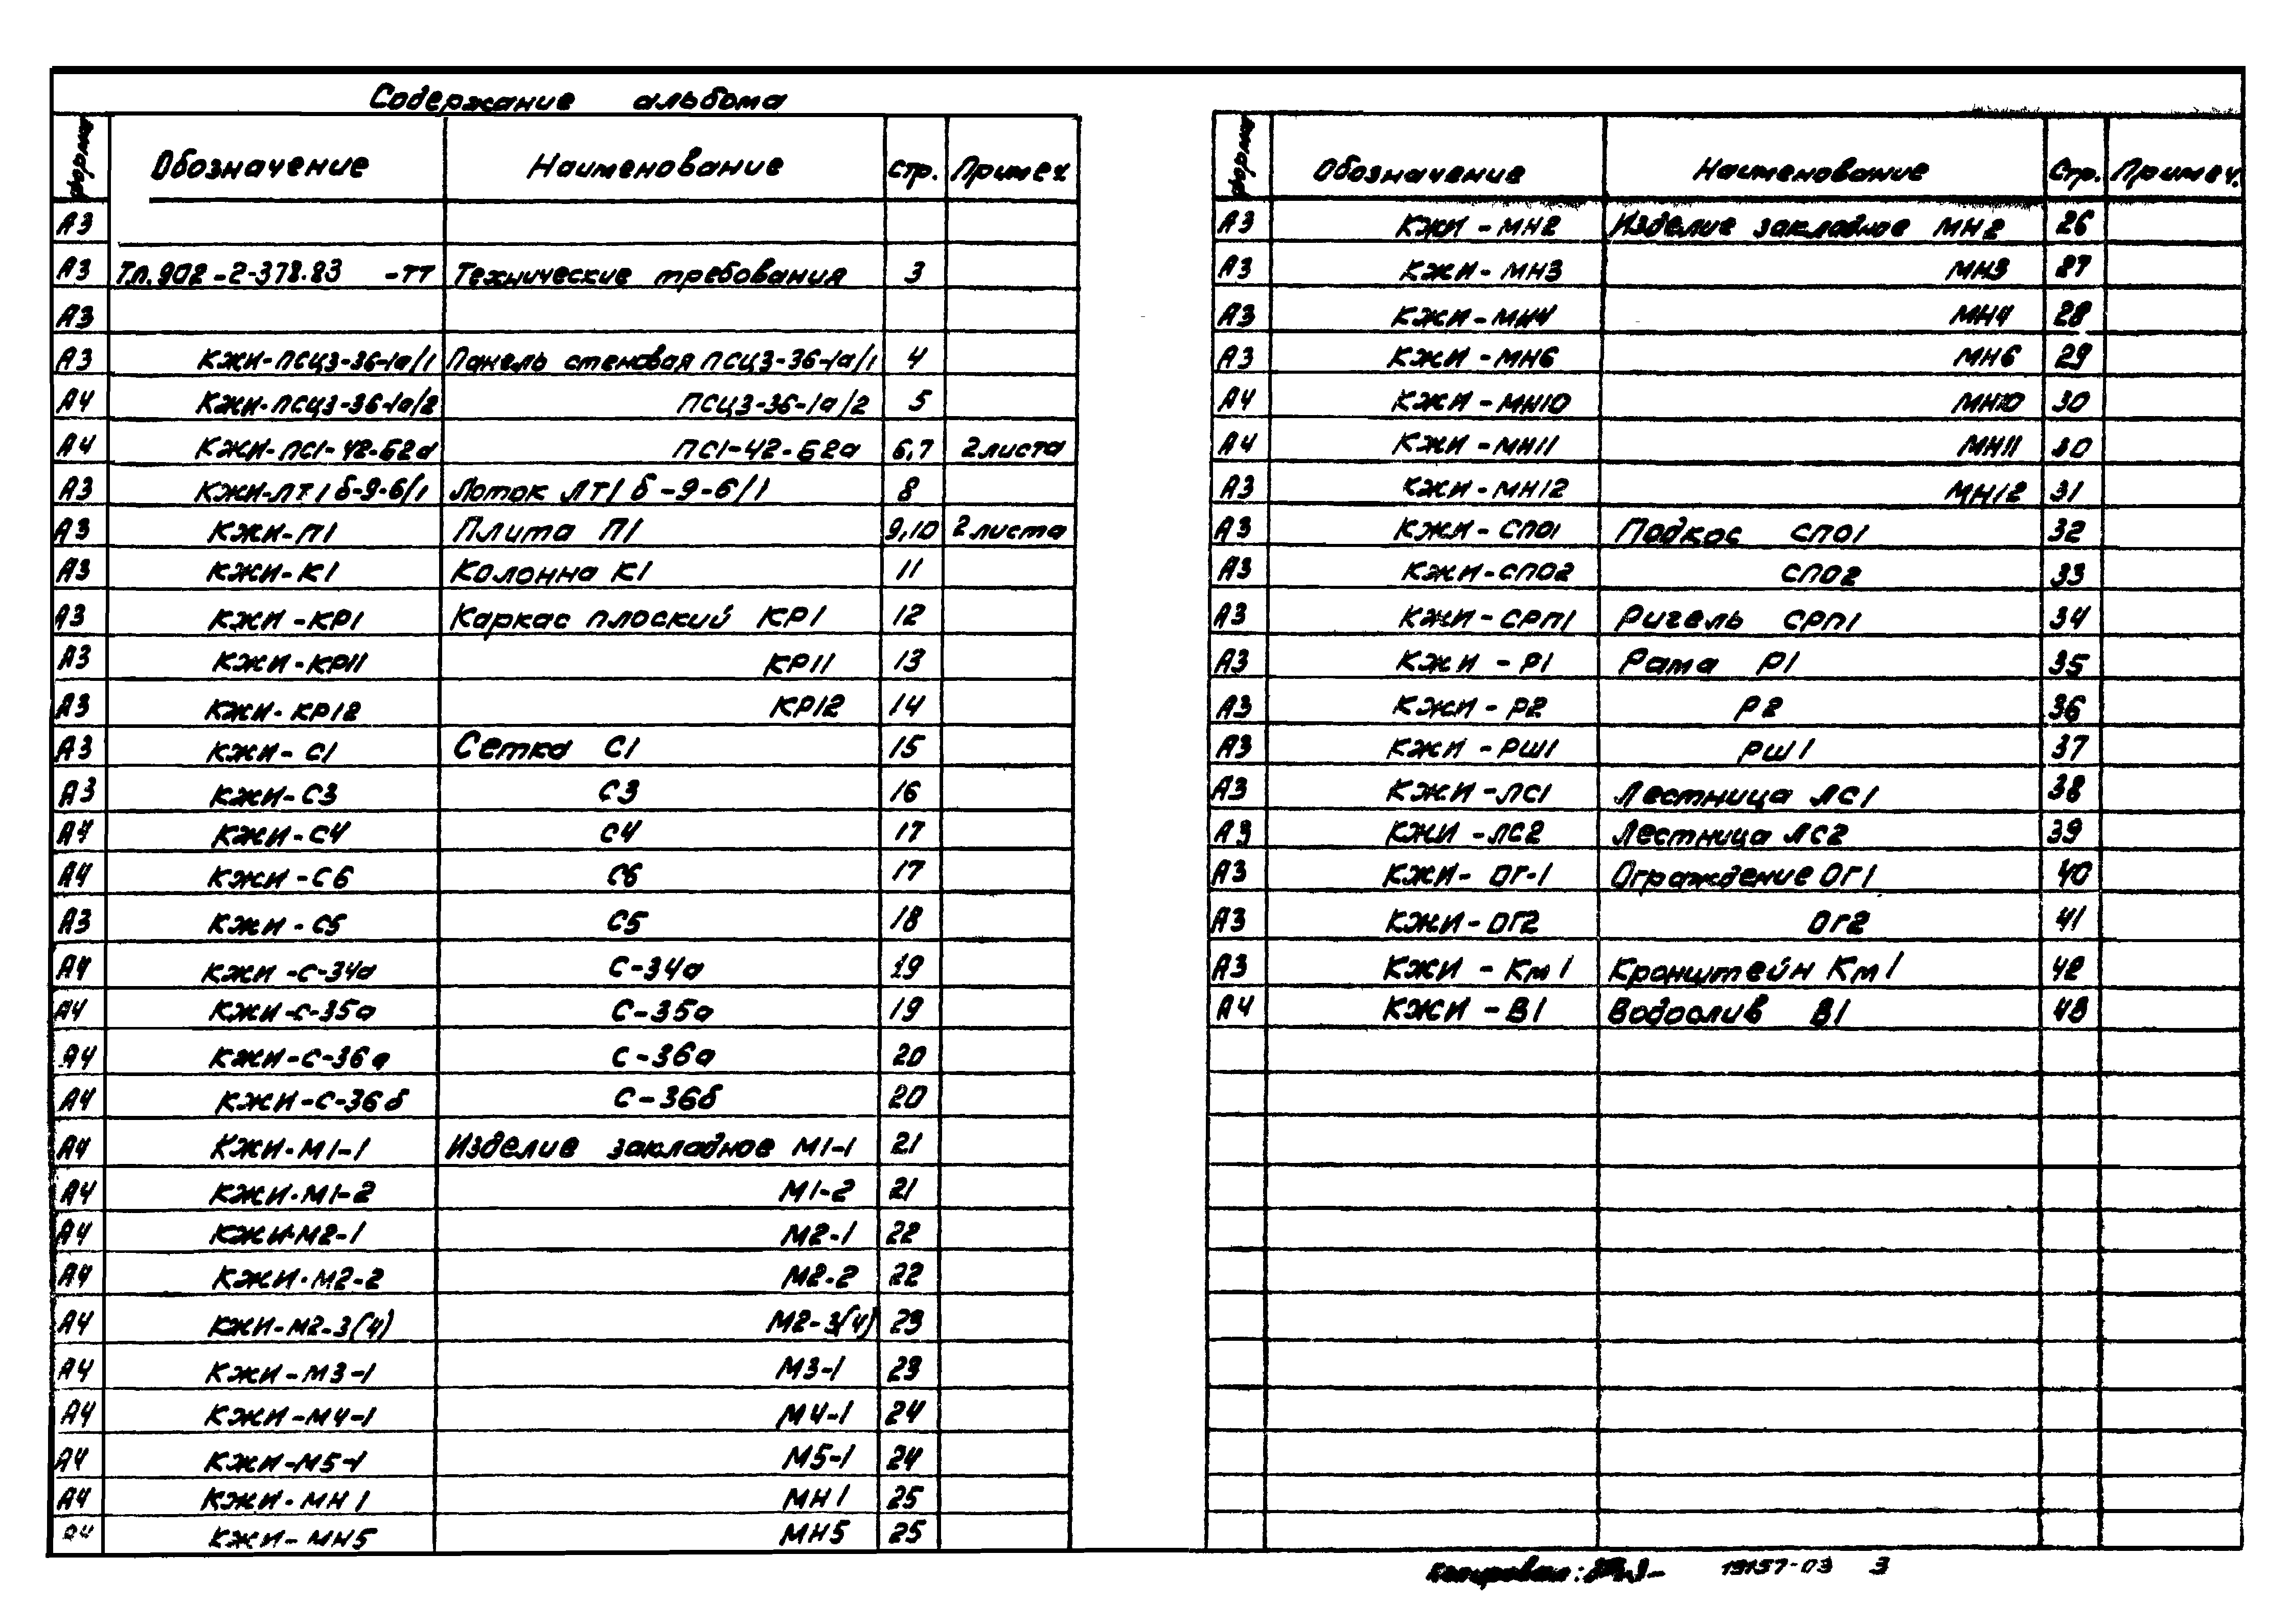 Содержание альбома
Формат Обозначение Наименование стр. Примеч
А3
А3 Т.п. 902-2-378.83 -ТТ Технические требования 3
А3
А3 КЖИ-ПСЦ3-36-1а/1 Панель стеновая ПСЦ3-36-1а/1 4
А4 КЖИ-ПСЦ3-36-1а/2 ПСЦ3-36-1а/2 5
А4 КЖИ-ПС1-42-Б2а ПС1-42-Б2а 6,7 2 листа
А3 КЖИ-ЛТ1б-9-6/1 Лоток ЛТ1б-9-6/1 8
А3 КЖИ-П1 Плита П1 9,10 2 листа
А3 КЖИ-К1 Колонна К1 11
А3 КЖИ-КР1 Каркас плоский КР1 12
А3 КЖИ-КР11 КР11 13
А3 КЖИ-КР12 КР12 14
А3 КЖИ-С1 Сетка С1 15
А3 КЖИ-С3 С3 16
А4 КЖИ-С4 С4 17
А4 КЖИ-С6 С6 17
А3 КЖИ-С5 С5 18
А4 КЖИ-С-34а С-34а 19
А4 КЖИ-С-35а С-35а 19
А4 КЖИ-С-36а С-36а 20
А4 КЖИ-С-36б С-36б 20
А4 КЖИ-М1-1 Изделие закладное М1-1 21
А4 КЖИ-М1-2 М1-2 21
А4 КЖИ-М2-1 М2-1 22
А4 КЖИ-М2-2 М2-2 22
А4 КЖИ-М2-3(4) М2-3(4) 23
А4 КЖИ-М3-1 М3-1 23
А4 КЖИ-М4-1 М4-1 24
А4 КЖИ-М5-1 М5-1 24
А4 КЖИ-МН1 МН1 25
А4 КЖИ-МН5 МН5 25
Формат Обозначение Наименование Стр. Примеч.
А3 КЖИ-МН2 Изделие закладное МН2 26
А3 КЖИ-МН3 МН3 27
А3 КЖИ-МН4 МН4 28
А3 КЖИ-МН6 МН6 29
А4 КЖИ-МН10 МН10 30
А4 КЖИ-МН11 МН11 30
А3 КЖИ-МН12 МН12 31
А3 КЖИ-СПО1 Подкос СПО1 32
А3 КЖИ-СПО2 СПО2 33
А3 КЖИ-СРП1 Ригель СРП1 34
А3 КЖИ-Р1 Рама Р1 35
А3 КЖИ-Р2 Р2 36
А3 КЖИ-РШ1 РШ1 37
А3 КЖИ-ЛС1 Лестница ЛС1 38
А3 КЖИ-ЛС2 Лестница ЛС2 39
А3 КЖИ-ОГ-1 Ограждение ОГ1 40
А3 КЖИ-ОГ2 ОГ2 41
А3 КЖИ-Км1 Кронштейн Км1 42
А4 КЖИ-В1 Водослив В1 43
Копировал: 19157-03 3